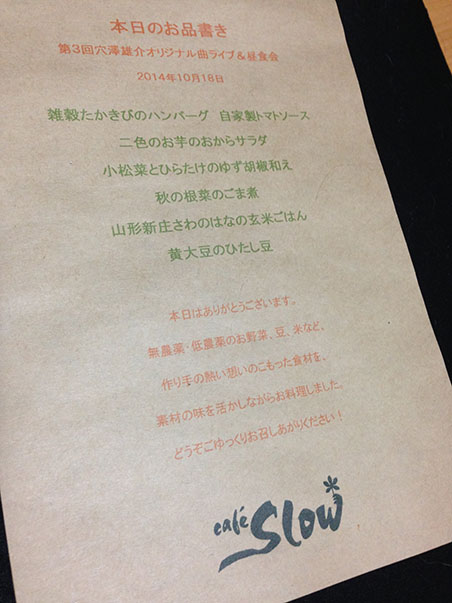 本日のお品書き
第3回穴澤雄介オリジナル曲ライブ&昼食会
2014年10月18日
雑穀たかきびのハンバーグ 自家製トマトソース
二色のお芋のおからサラダ
小松菜とひらたけのゆず胡椒和え
秋の根菜のごま煮
山形新庄さわのはなの玄米ごはん
黄大豆のひたし豆
本日はありがとうございます。
無農薬・低農薬のお野菜、豆、米など、
作り手の熱い想いのこもった食材を、
素材の味を活かしながらお料理しました。
どうぞごゆっくりお召しあがりください!
café Slow